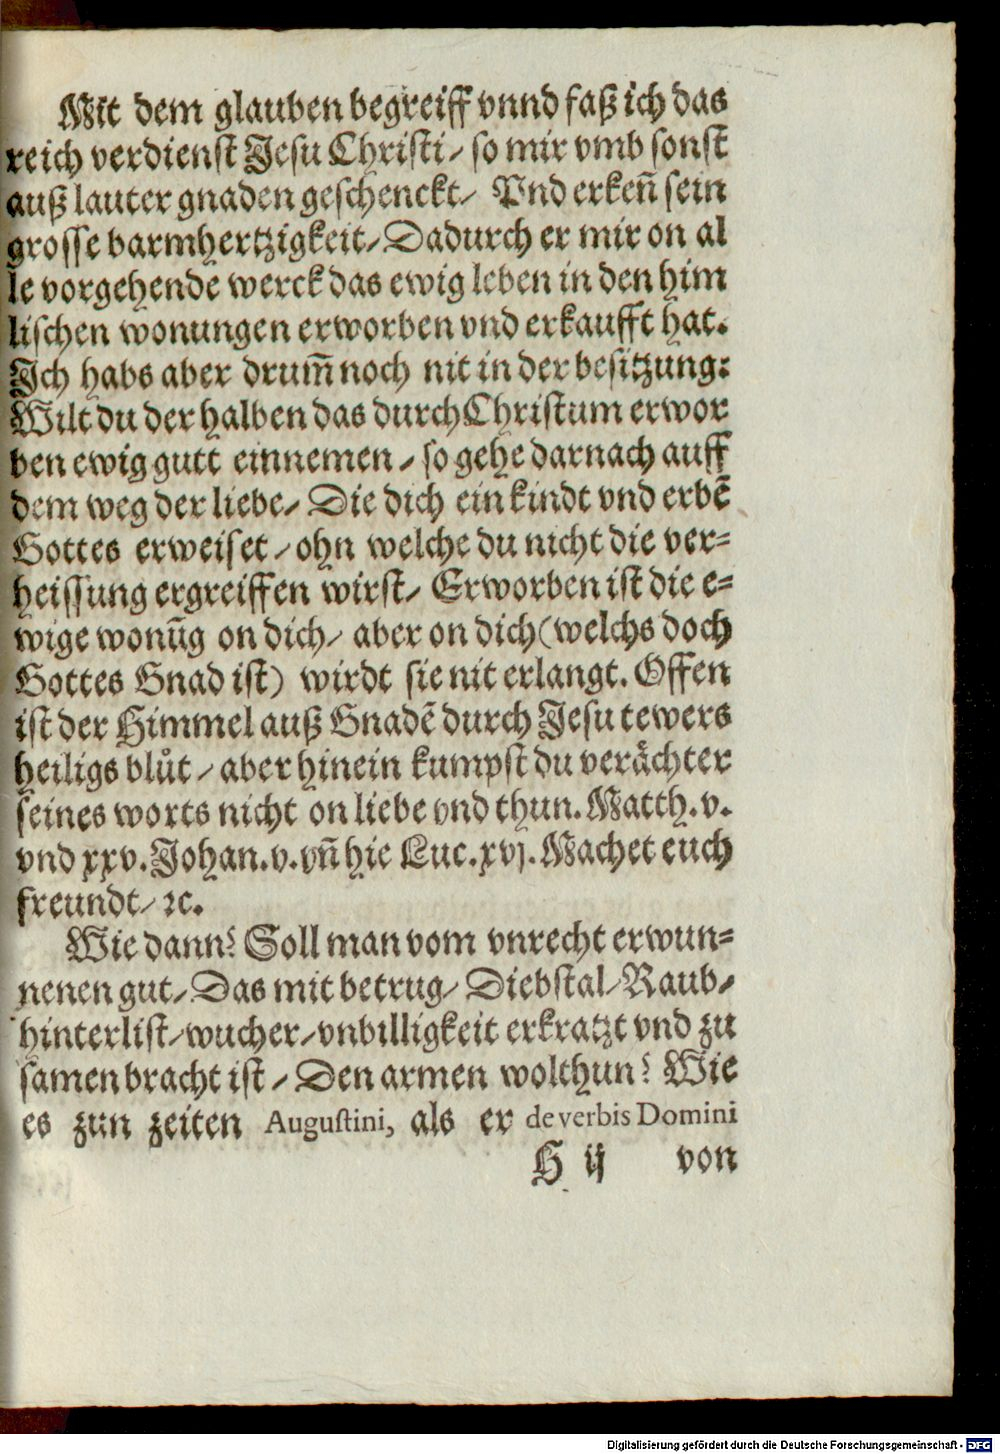 Mit dem glauben begreiff vnnd faß ich das
reich verdienst Jesu Christi/ so mir vmb sonst
auß lauter gnaden geschenckt/ Vnd erkeñ sein
grosse barmhertzigkeit/ Dadurch er mir on al
le vorgehende werck das ewig leben in den him
lischen wonungen erworben vnd erkaufft hat.
Ich habs aber drum̃ noch nit in der besitzung:
Wilt du der halben das durch Christum erwor
ben ewig gutt einnemen/ so gehe darnach auff
dem weg der liebe/ Die dich ein kindt vnd erbẽ
Gottes erweiset/ ohn welche du nicht die ver⸗
heissung ergreiffen wirst/ Erworben ist die e⸗
wige wonũg on dich/ aber on dich (welchs doch
Gottes Gnad ist) wirdt sie nit erlangt. Offen
ist der Himmel auß Gnadẽ durch Jesu tewers
heiligs blůt/ aber hinein kumpst du verächter
seines worts nicht on liebe vnd thun. Matth. v.
vnd xxv. Johan. v. vñ hie Luc. xvj. Machet euch
freundt/ ꝛc.
Wie dann? Soll man vom vnrecht erwun⸗
nenen gut/ Das mit betrug/ Diebstal/ Raub/
hinterlist/ wucher/ vnbilligkeit erkratzt vnd zu
samen bracht ist/ Den armen wolthun? Wie
es zun zeiten Augustini, als er de verbis Domini
H ij von
Digitalisierung gefördert durch die Deutsche Forschungsgemeinschaft - DFG